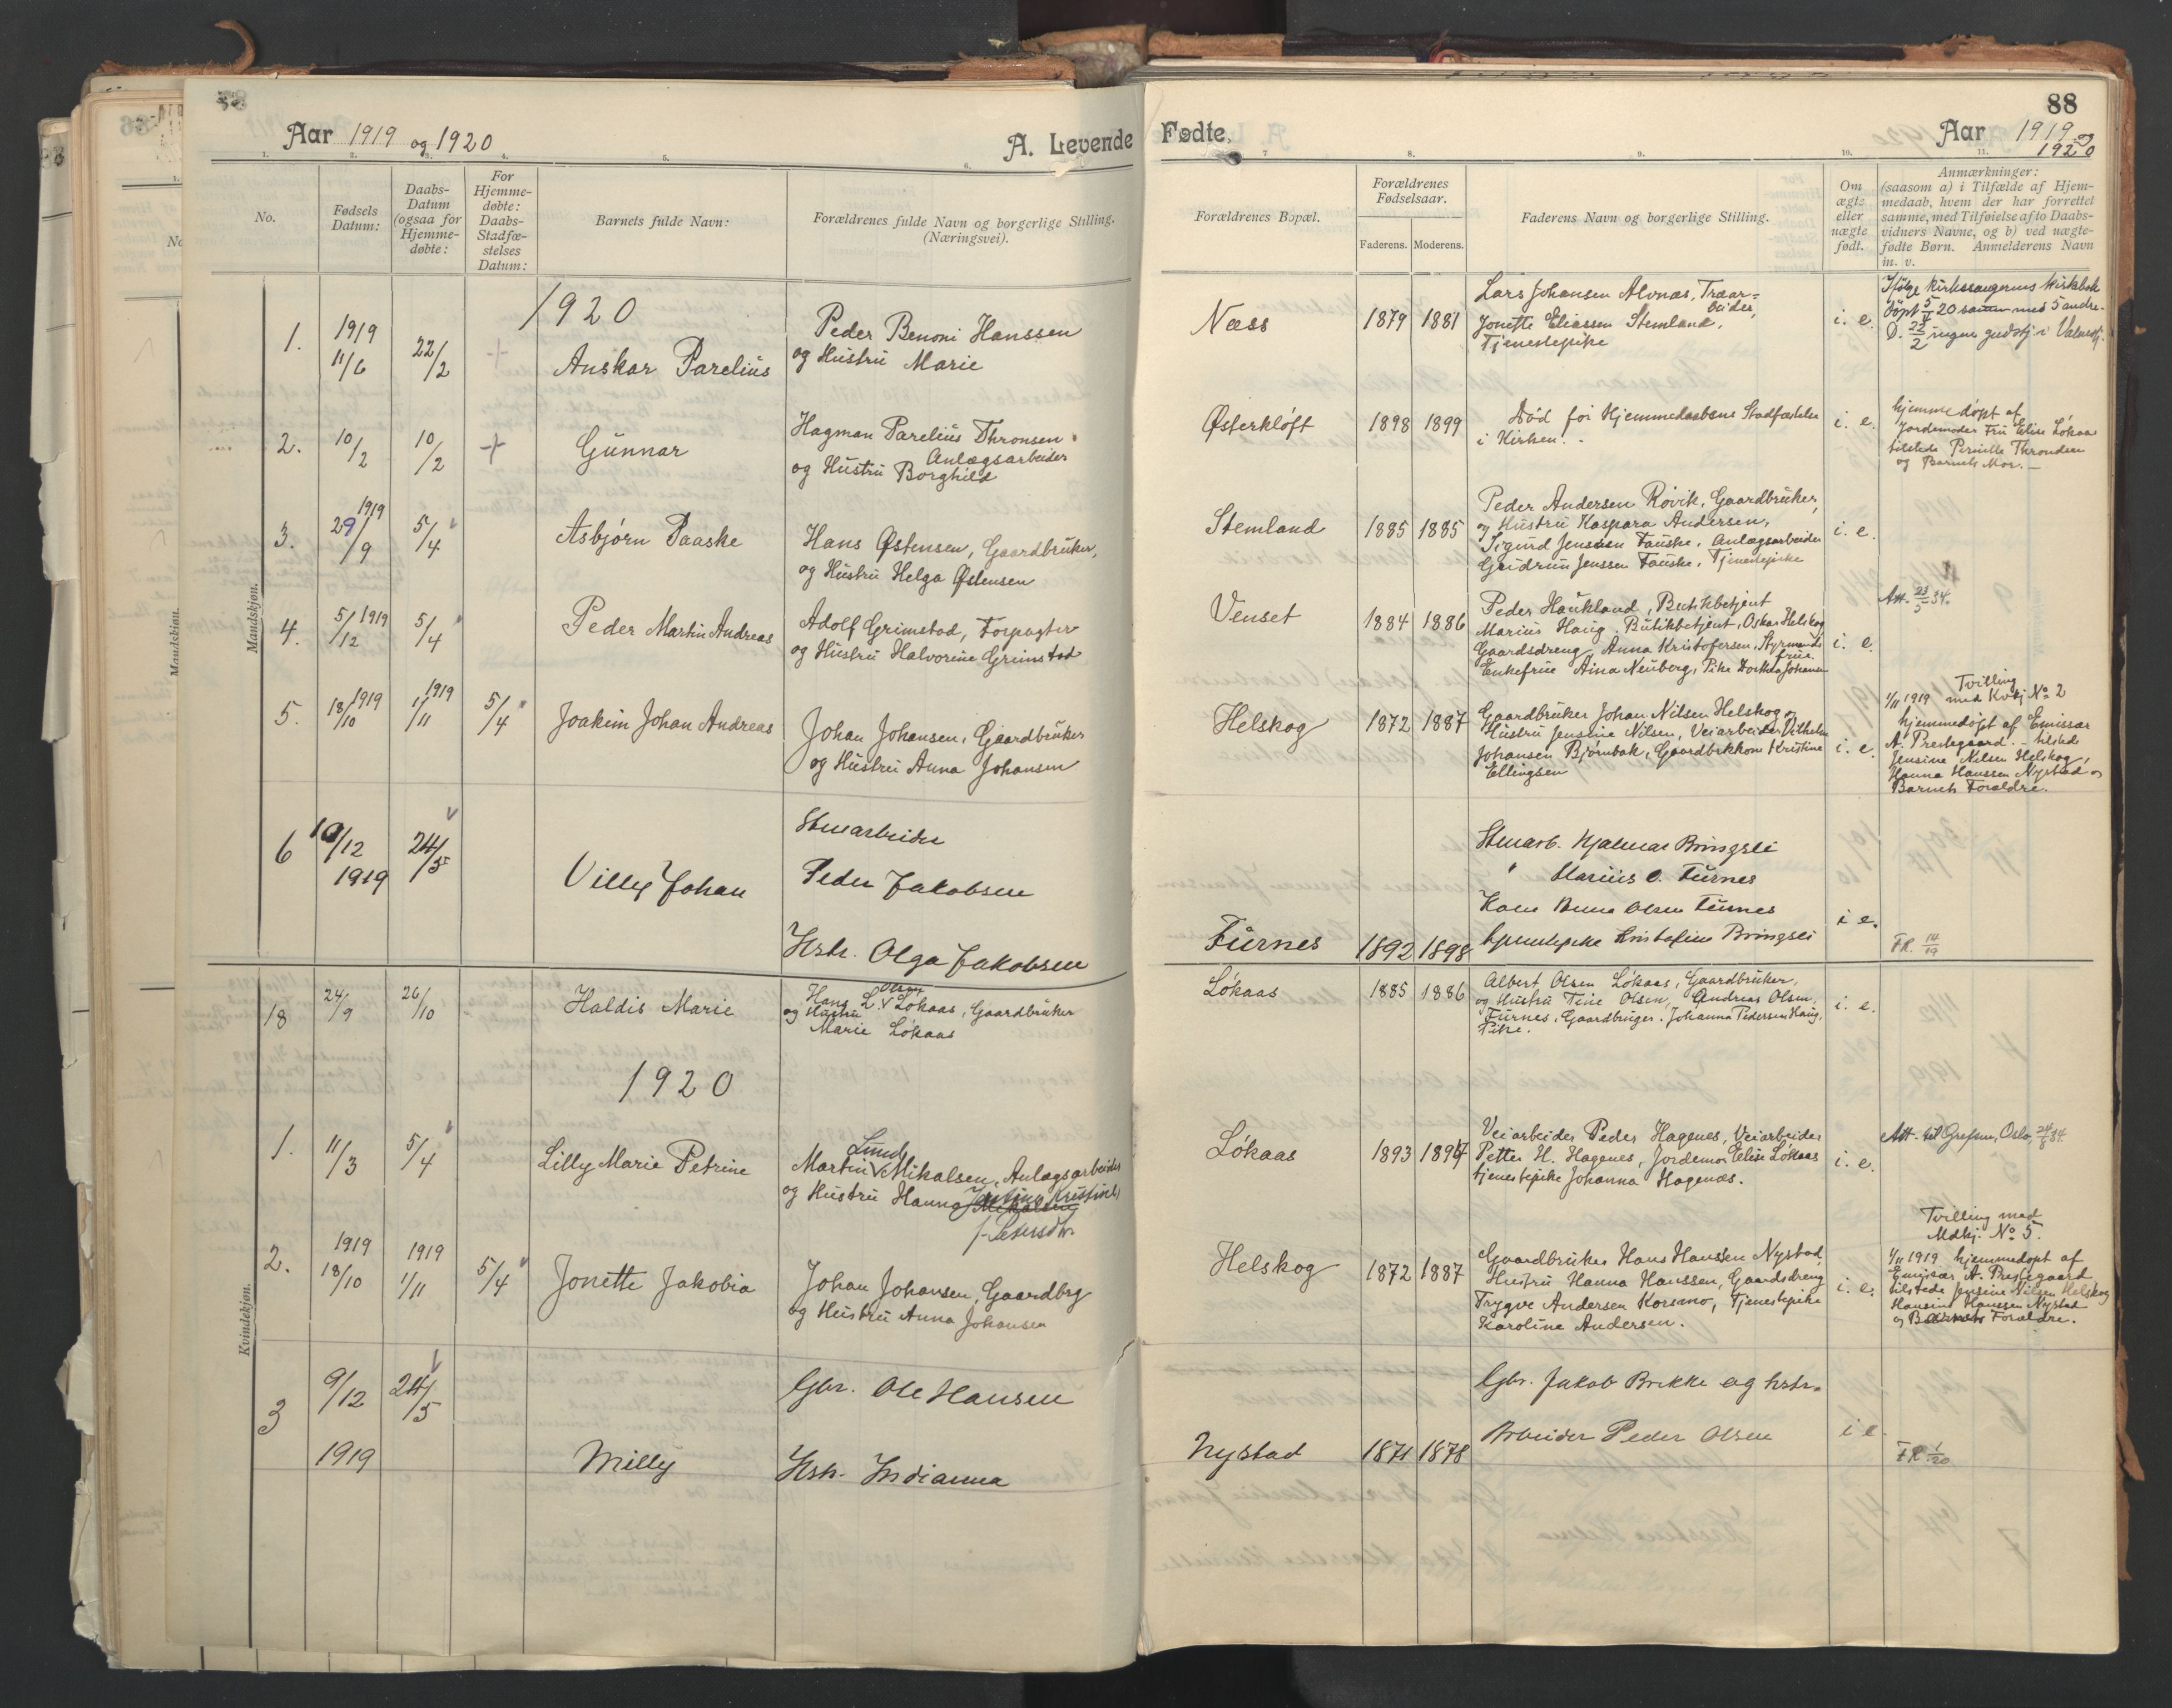 Aar 1919 og 1920
A. Levende
1. 2. 3. 4. 5. 6.
No.
Fødsels Datum:
Daabs-
Datum
(ogsaa for
Hjemme-
døbte:
For
Hjemme-
døbte:
Daabs-
Stadfæ-
stelses
Datum:
Barnets fulde Navn:
Forældrenes fulde Navn og borgerlige Stilling.
(Næringsvei).
Mandskjøn.
1920
1. 1919 11/6 22/2 + Anskar Parelius
Peder Benoni Hanssen
og Hustru Marie
2. 10/2 10/2 + Gunnar
Hagman Parelius Thronsen
Anlægsarbeider
og Hustru Borghild
3. 29/9 1919 5/4 Asbjørn Paaske
Hans Østensen, Gaardbruker,
og Hustru Helga Østensen
4. 5/12 1919 5/4 Peder Martin Andreas
Adolf Grimstad, Forpagter
og Hustru Halvorine Grimstad
5. 18/10 1919 1/11 1919 5/4 Joakim Johan Andreas
Johan Johansen, Gaardbruker
og Hustru Anna Johansen
6 19/12 1919 24/5 Villy Johan
Stenarbeider
Peder Jakobsen
Hstr. Olga Jakobsen
Kvindekjøn.
18 24/9 26/10 Haldis Marie
Hans L. Olsen Løkaas, Gaardbruker
og Hustru
Marie Løkaas
1920
1. 11/3 5/4 Lilly Marie Petrine
Lund
Martin Mikalsen, Anlægsarbeider
og Hustru Hanna Justine Kristine
Mikalsen
f. Pedersdtr.
2. 1919 18/10 1919 1/11 5/4 Jonette Jakobia
Johan Johansen, Gaardbrg
og Hustru Anna Johansen
3 9/12 1919 24/5 Milly
Gbr. Ole Hansen
Hstr. Indianna
88
Fødte.
Aar 1919 og
1920
7 8. 9. 10. 11.
Forældrenes Bopæl.
Forældrenes
Fødselsaar.
Faderens. Moderens.
Faderens Navn og borgerlige Stilling.
Om
ægte
eller
uægte
født.
Anmærkninger:
(saasom a) i Tilfælde af Hjem-
medaab, hvem der har forrettet
samme, med Tilføielse af to Daabs-
vidners Navne, og b) ved uægte-
fødte Børn. Anmelderens Navn
m. v.
Næss 1879 1881
Lars Johansen Alvnæs, Træar-
beider,
Jonette Eliassen Stemland,
Tjenestepike
i. e.
Ifølge kirkesangerens kirkebok
døpt 5/4 20 sammen med 5 andre.
D. 22/2 ingen gudstj. i Valnesfj.
Østerkløft 1898 1899
Død før Hjemmedaabens Stadfæstelse
i Kirken.
i. e.
hjemmedøpt af
Jordemoder Fru Elise Løkaas
tilstede Pernille Throndsen
og Barnets Mor.
Stemland 1885 1885
Peder Andersen Røvik, Gaardbruker,
og Hustru Kaspara Andersen,
Sigurd Jenssen Fauske, Anlægsarbeider
Gudrun Jenssen Fauske, Tjenestepike
i. e.
Venset 1884 1886
Peder Haukland, Butikbetjent
Marius Haug, Butikbetjent, Oskar Helskog
Gaardsdreng, Anna Kristofersen, Styrmands
frue
Enkefrue Aina Neuberg, Pike Dorthea Johansen
i. e.
Att. 23/5 34.
Helskog 1872 1887
Gaardbruker Johan Nilsen Helskog og
Hustru Jensine Nilsen, Veiarbeider Vilhelm
Johansen Bjørnbak, Gaardbrkkone Kristine
Ellingsen
i. e.
Tvilling
1/11 1919 med Kvkj No 2
hjemmedøpt af Emissær
A. Prestegaard. – tilstede
Jensine Nilsen Helskog,
Hanna Hanssen Nystad og
Barnets Forældre.
Furnes 1892 1898
Stenarb. Hjalmar Bringsli
" Marius O. Furnes
Kone Anna Olsen Furnes
tjenestepike Kristofine Bringsli
i e.
FR. 14/19
Løkaas 1885 1886
Albert Olsen Løkaas, Gaardbruker,
og Hustru Tine Olsen, Andreas Olsen
Furnes, Gaardbruger. Johanna Pedersen Haug,
Pike.
i. e.
Løkaas 1893 1897
Veiarbeider Peder Hagenes, Veiarbeider
Petter H. Hagenes, Jordemor Elise Løkaas
tjenestepike Johanna Hagenæs.
i. e.
Att. til Grefsen, Oslo, 24/8 34.
Helskog 1872 1887
Gaardbruker Hans Hanssen Nystad,
Hustru Hanna Hanssen, Gaardsdreng
Trygve Andersen Korsmo, Tjenestepike
Karoline Andersen.
i. e.
Tvilling med
Mdkj. No 5.
1/11 1919 hjemmedøpt af
Emissær A. Prestegaard
tilstede Jensine Nilsen Helskog
Hansine Hanssen Nystad
og Barnets Forældre.
Nystad 1871 1878
Gbr. Jakob Brekke og hstr.
Arbeider Peder Olsen
i e
FR 1/20